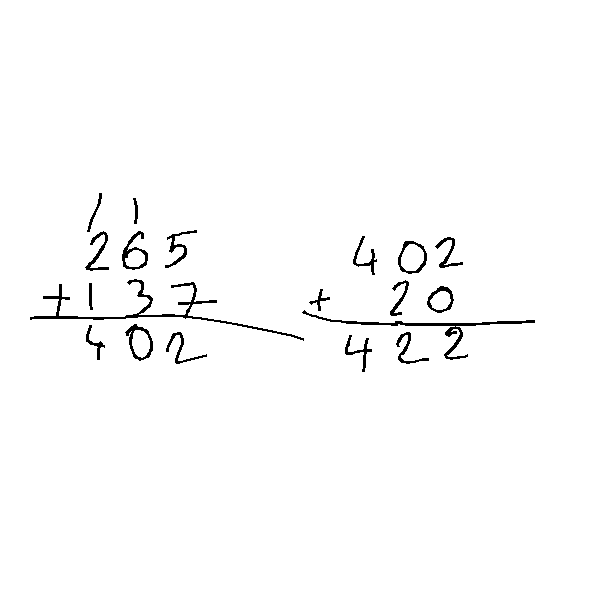 1 1
265
+137
402
402
+ 20
422